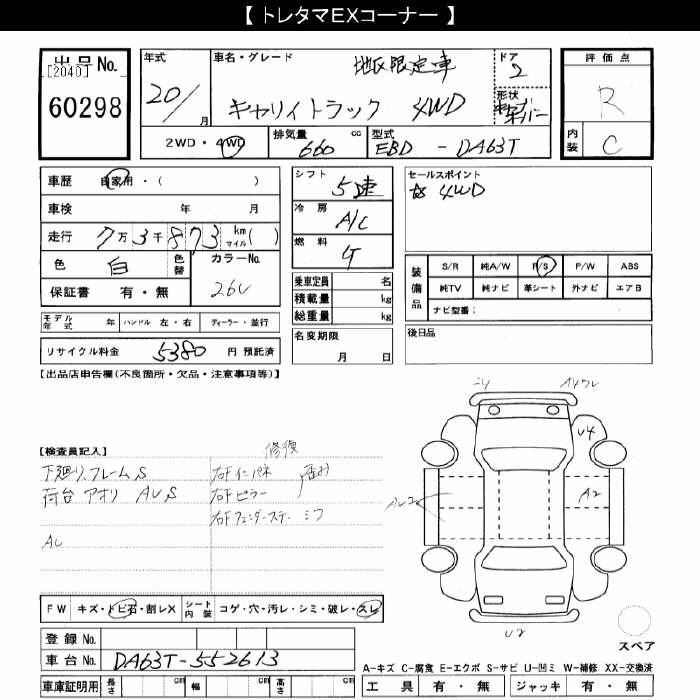 【 トレタマEXコーナー 】
出品No.
[2040]
60298
年式
20/
月
車名・グレード
地区限定車
キャリイトラック 4WD
ドア
2
形状
2WD・4WD
排気量 cc
660
型式
EBD - DA63T
評価点
R
内装
C
車歴 自家用・( )
車検 年 月
走行 7万3千873 km マイル( )
色 白 色替
カラーNo.
26U
保証書 有・無
モデル年式 年 ハンドル 左・右 ディーラー・並行
リサイクル料金 5380 円 預託済
シフト
5速
冷房
A/C
燃料
G
乗車定員 名
積載量 kg
総重量 kg
名変期限
月 日
セールスポイント
4WD
装備品
S/R 純A/W P/S P/W ABS
純TV 純ナビ 革シート 外ナビ エアB
ナビ型番:
後日品
【出品店申告欄(不良箇所・欠品・注意事項等)】
【検査員記入】
修復
下廻り,フレームS
荷台 アオリ AUS
AU
右Fインパネ 歪み
右Fピラー
右Fフェンダーステー ミワ
A4
U4
AU2
A2
U2
FW キズ・トビ石・割レX
シート内装 コゲ・穴・汚レ・シミ・破レ・スレ
登録No.
車台No. DA63T-552613
車庫証明用 長さ cm 幅 cm 高さ cm
スペア
A-キズ C-腐食 E-エクボ S-サビ U-凹ミ W-補修 XX-交換済
工具 有・無 ジャッキ 有・無